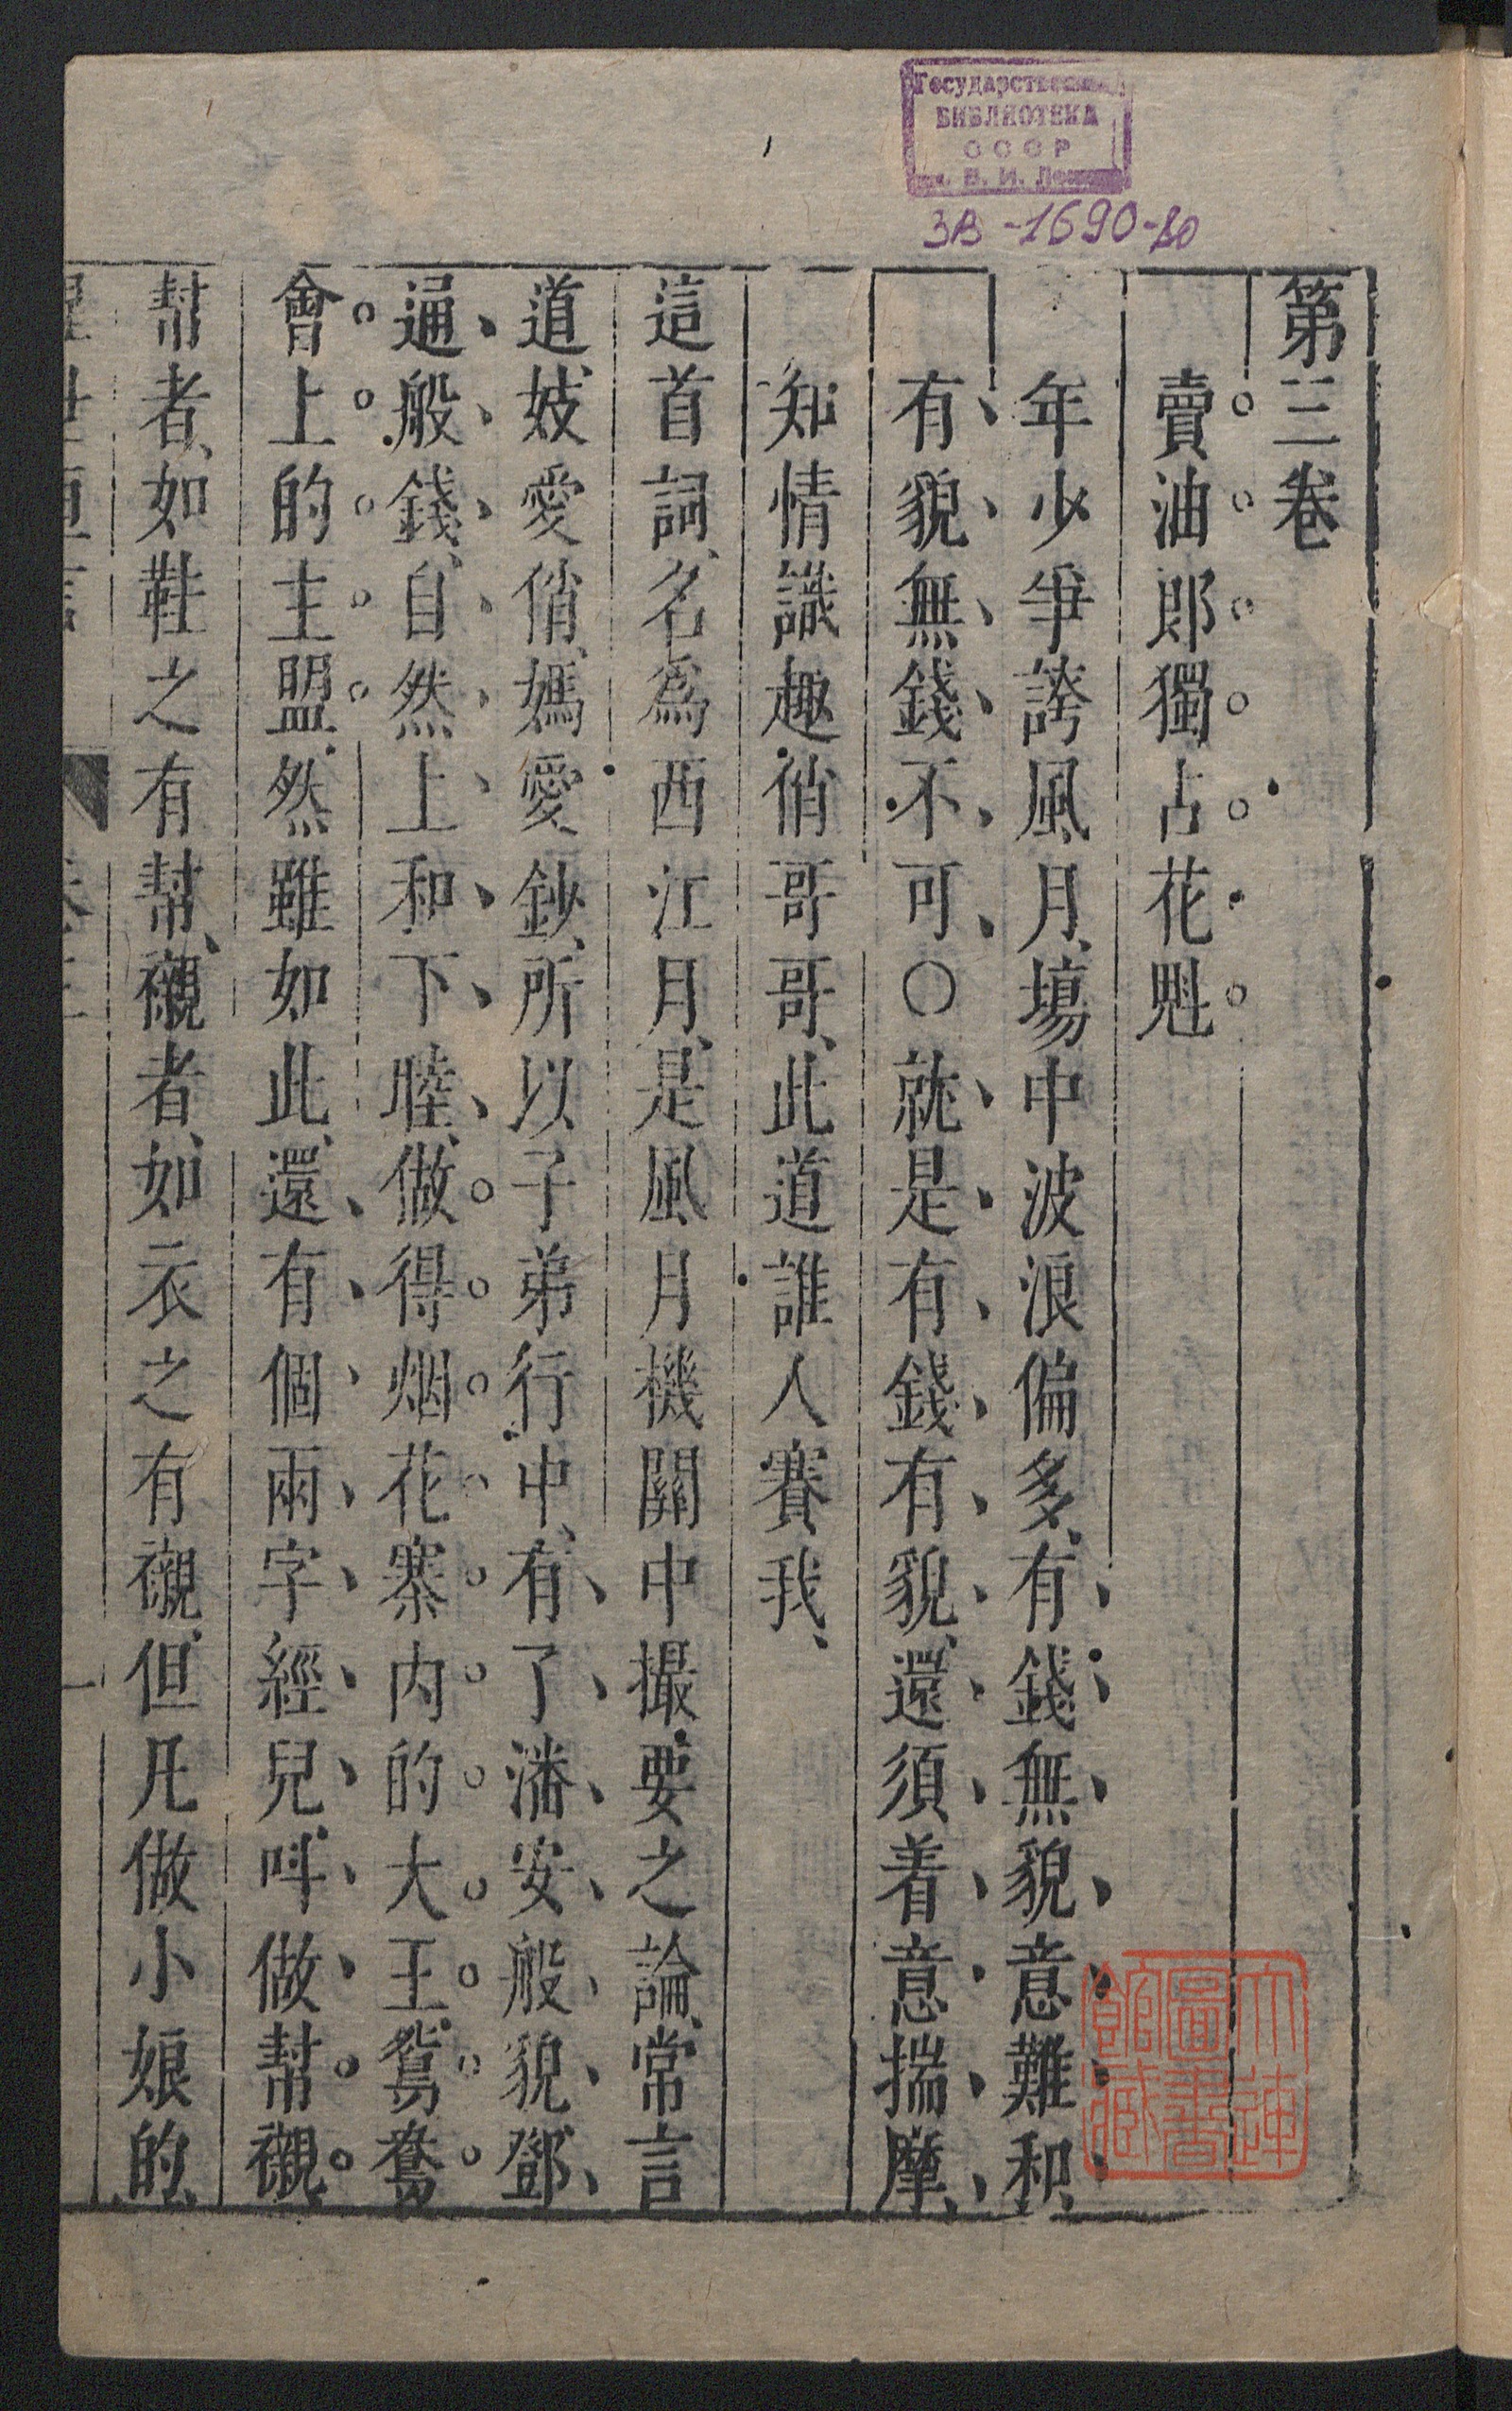 Государственная
БИБЛИОТЕКА
СССР
В. И. Ленина
ЗВ-1690-80
第三卷
賣油郎獨占花魁
年少爭誇風月、塲中波浪偏多、有錢無貌意難和、
有貌無錢不可〇就是有錢有貌、還須着意揣摩、
知情識趣俏哥哥、此道誰人賽我、
這首詞、名爲西江月、是風月機關中撮要之論、常言
道、妓愛俏、媽愛鈔、所以子弟行中、有了潘安般貌、鄧
通般錢、自然上和下睦、做得烟花寨內的大王、鴛鴦
會上的主盟、然雖如此、還有個兩字經兒、呌做幫襯、
幫者、如鞋之有幫、襯者、如衣之有襯、但凡做小娘的、
一
大連
圖書
館藏